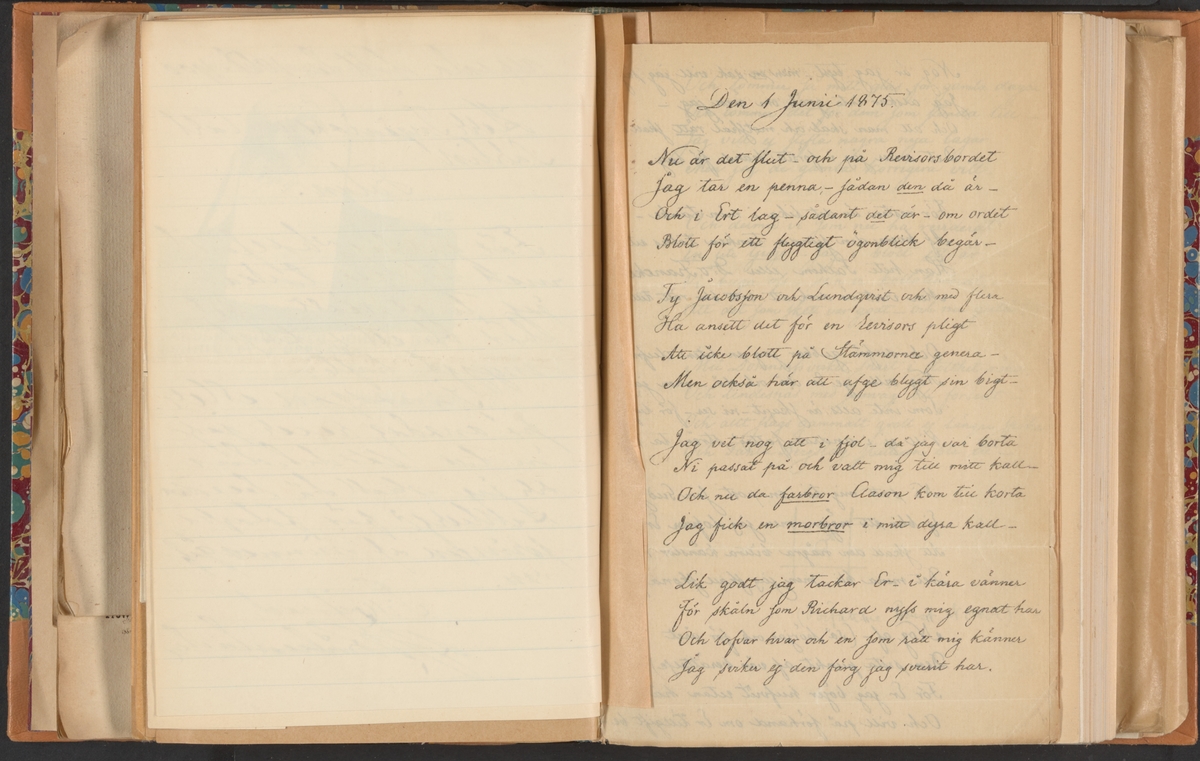 Den 1 Junii 1875.
Nu är det slut – och på Revisorsbordet
Jag tar en penna – sådan den då är –
Och i Ert lag – sådant det är – om ordet
Blott för ett flygtigt ögonblick begär –
Ty Jacobsson och Lundqvist och med flera
Ha ansett det för en Revisors pligt
Att icke blott på Stämmorna genera –
Men också här att afge blygt sin bigt –
Jag vet nog att i fjol – då jag var borta
Ni passat på och valt mig till mitt kall –
Och nu då farbror Clason kom till korta
Jag fick en morbror i mitt dyra kall –
Lik godt jag tackar Er – i kära vänner
För skåln som Richard nyss mig egnat har
Och lofvar hvar och en som rätt mig känner
Jag sviker ej den färg jag svurit har.